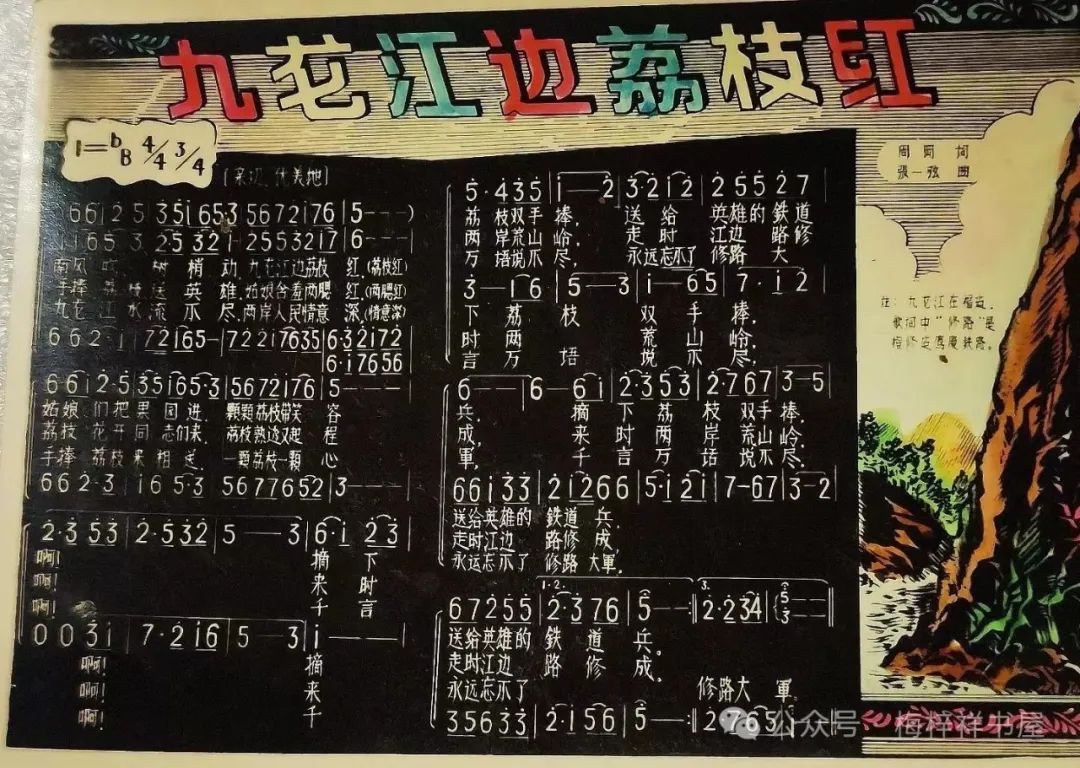 九龙江边荔枝红
1=bB 4/4 3/4
〔亲切、优美地〕
周 词
张一弦 曲
66 1̇2̇·5 3 5 1̇ 6 5·3 | 5 6 7 2 1 7 6 | 5 - - - )
1 1 6 5 3 2·5 3 2 1 | 2 5 5 3 2 1 7 | 6 - - -
南风 树梢动,九龙江边荔枝 红,(荔枝红)
手捧荔枝送英雄,姑娘含羞两腮 红,(两腮红)
九龙江水流不尽,两岸人民情意 深,(情意深)
6 6 2·1 | 7 2 1 6 5 - | 7 2 2 1 7 6 3 5 | 6·3 2 1 7 2
6·1 7 6 5 6
6 6 1 2·5 | 3 5 1 6 5·3 | 5 6 7 2 1 7 6 | 5 - - -
姑娘们把果园进, 颗颗荔枝带笑 容
荔枝花开同志们来, 荔枝熟透又起 程
手捧荔枝来相送, 一颗荔枝一颗 心
6 6 2·3 | 1 6 5·3 | 5 6 7 7 6 5 2 | 3 - - -
2·3 5 3 | 2·5 3 2 | 5 - - 3 | 6·1 2·3
啊! 摘 下
啊! 来 时
啊! 千 言
0 0 3 1 | 7·2 1 6 | 5 - - 3 | 1 - - -
啊! 摘
啊! 来
啊! 千
5·4 3 5 | 1 - - 2 | 3 2 1 2 | 2 5 5 2 7
荔枝双手捧, 送给 英雄的 铁道
两岸荒山岭, 走时 江边 路修
万语说不尽, 永远忘不了 修路 大
3 - 1 6 | 5 - - 3 | 1 - 6 5 | 7·1 2
下 荔 枝 双 手 捧,
时 两 荒 山 岭,
言 万 语 说 不 尽,
6 - - | 6 - 6 1 | 2·3 5 3 | 2·7 6 7 | 3 - 5
兵, 摘 下 荔 枝 双手 捧,
成, 来 时 两 岸 荒山 岭,
军, 千 言 万 语 说不 尽,
6 6 1 3 3 | 2 1 2 6 6 | 5·1 2 1 | 7 - 6 7 | 3 - 2
送给英雄的 铁道 兵,
走时江边 路修 成,
永远忘不了 修路 大军,
1.2. 3.
6 7 2 5 5 | 2·3 7 6 | 5 - - :| 2·2 3 4 | 5 3 - -
送给英雄的 铁 道 兵,
走时江边 路 修 成,
永远忘不了 修路大 军
3 5 6 3 3 | 2·1 5 6 | 5 - - :| 2 7 6 5 | 5 - -
注:九龙江在福建,
歌词中“修路”是
指修建鹰厦铁路。
公众号·梅梓祥书屋